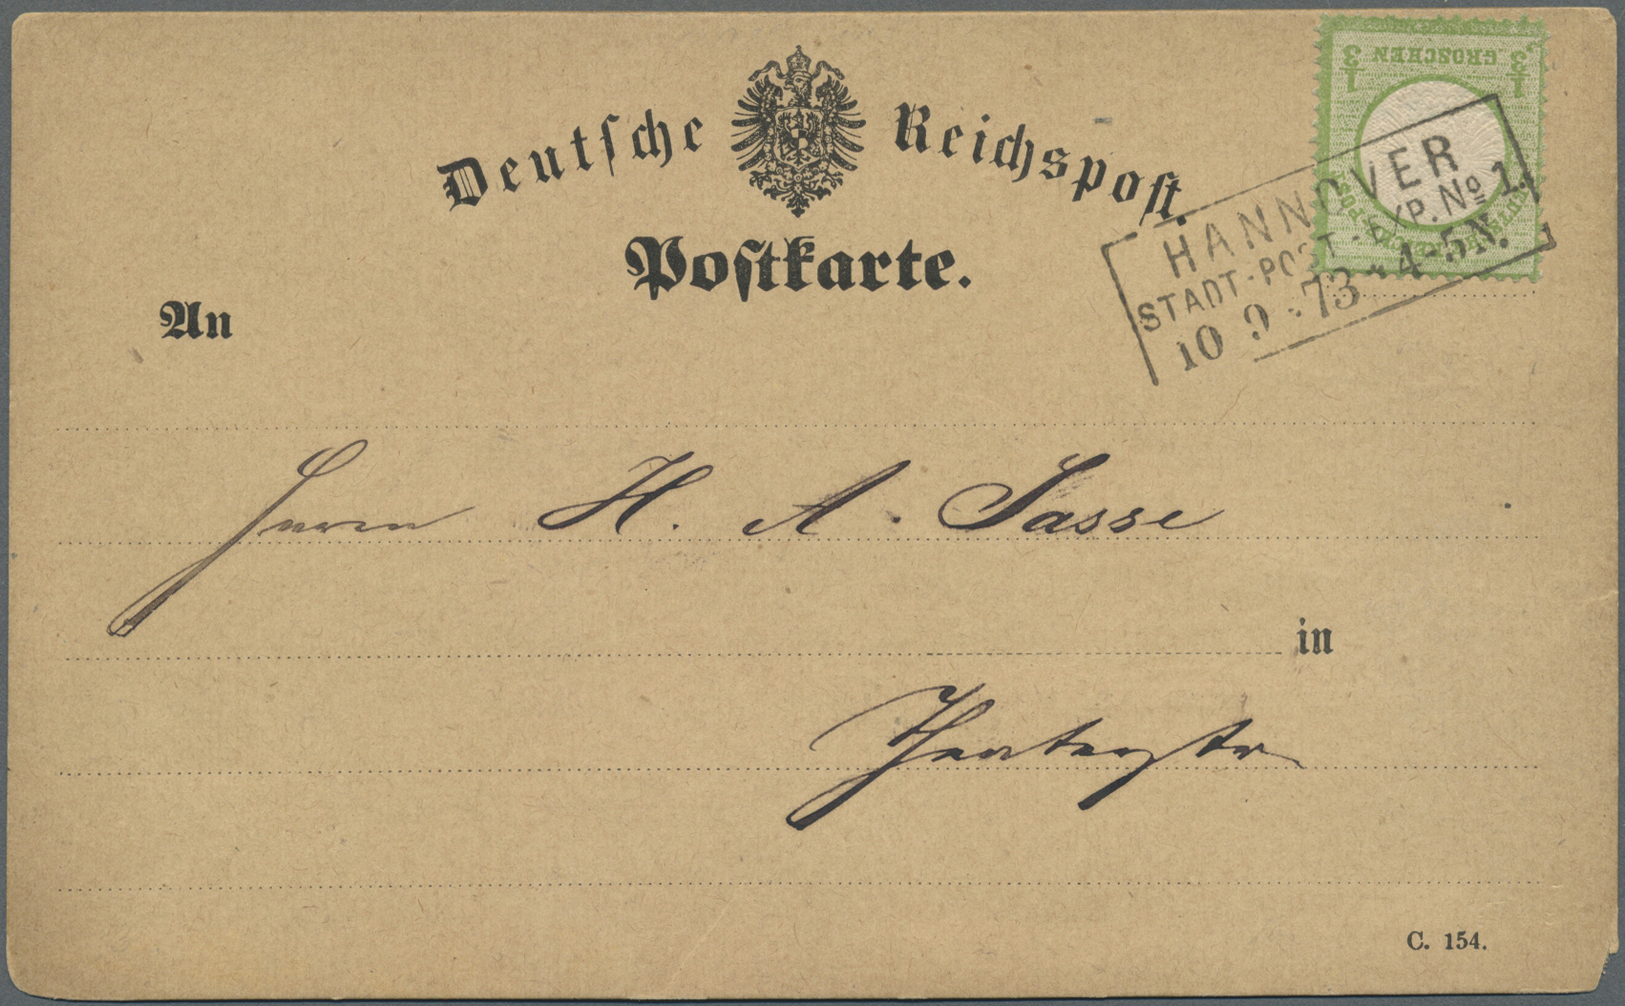 Deutſche Reichspoſt.
Poſtkarte.
1/3 GROSCHEN 1/3
HANNOVER
STADT-POST-EXP. No 1.
10 9 73 * 4-5 N.
An
Herrn H. A. Sasse
in
C. 154.